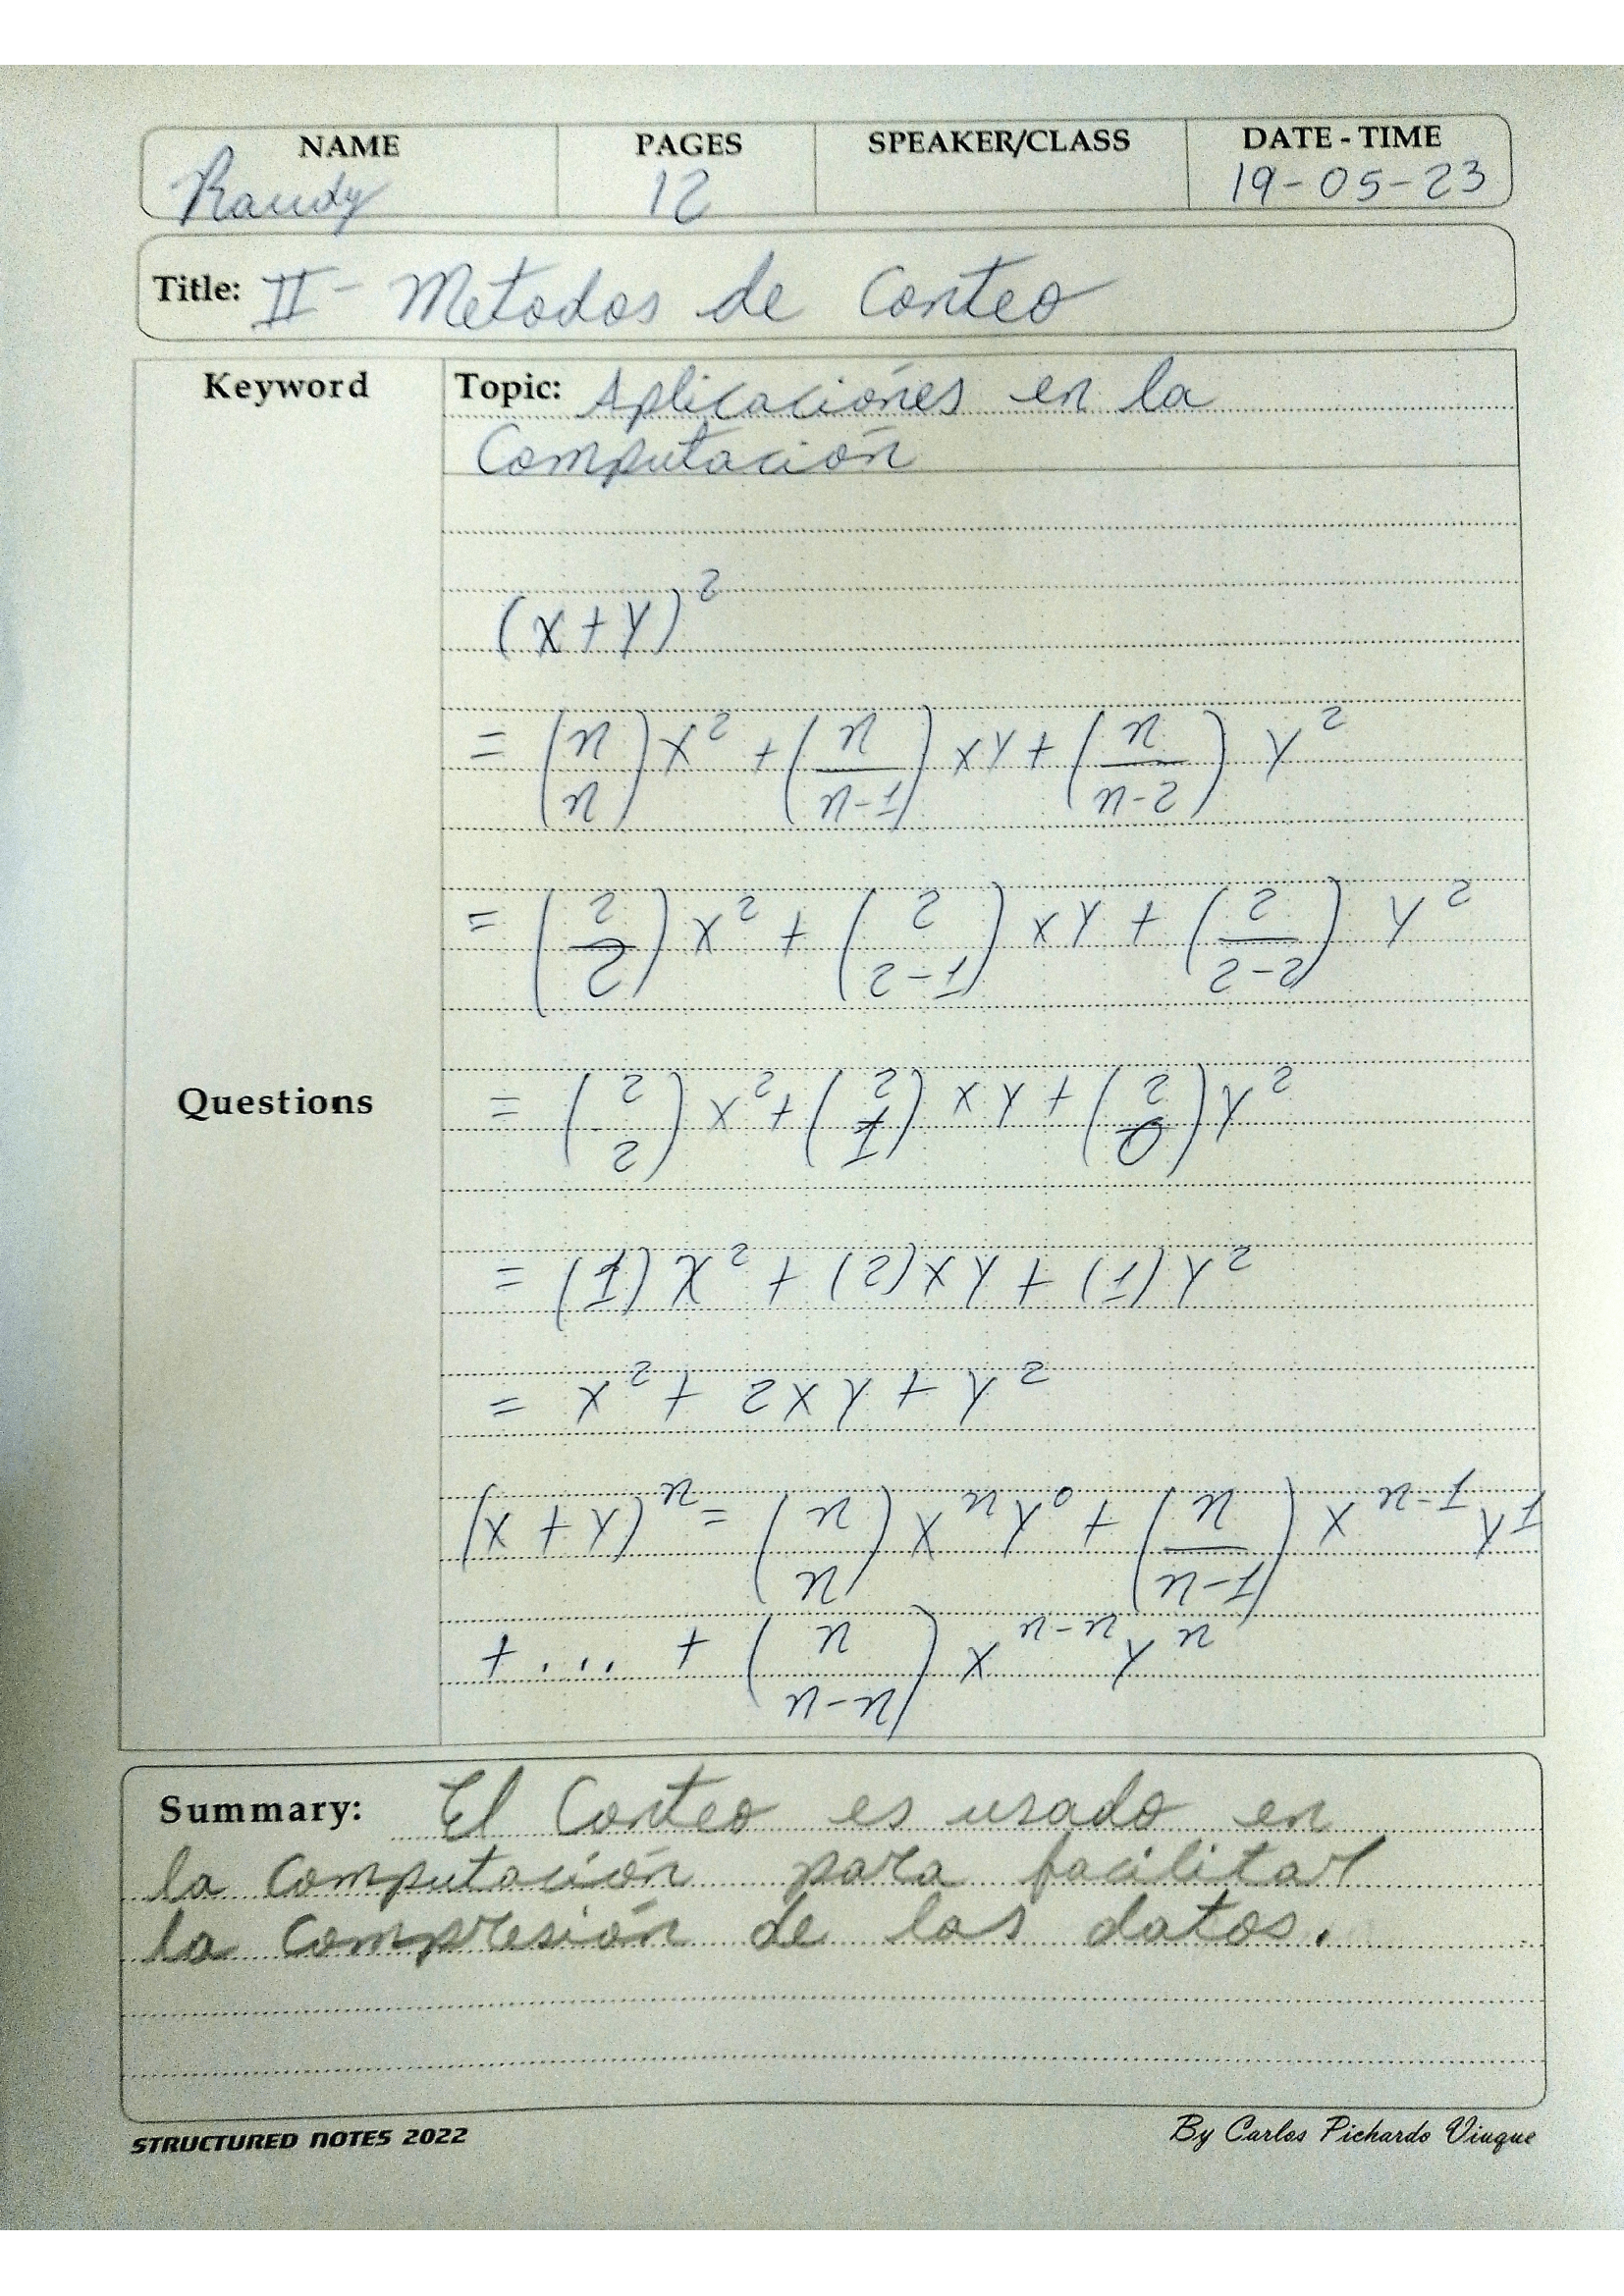 NAME PAGES SPEAKER/CLASS DATE - TIME
Raudy 12 19-05-23
Title: II - Metodos de Conteo
Keyword Topic: Aplicaciónes en la
Computación
(x+y)²
= (n/n)x² + (n/n-1) xy + (n/n-2) y²
= (2/2) x² + (2/2-1) xy + (2/2-2) y²
Questions = (2/2) x² + (2/1) xy + (2/0) y²
= (1) x² + (2) xy + (1) y²
= x² + 2xy + y²
(x+y)ⁿ = (n/n) xⁿy⁰ + (n/n-1) xⁿ⁻¹y¹
+ ... + (n/n-n) xⁿ⁻ⁿyⁿ
Summary: El Conteo es usado en
la computación para facilitar
la compresión de los datos.
STRUCTURED NOTES 2022 By Carlos Pichardo Viuque